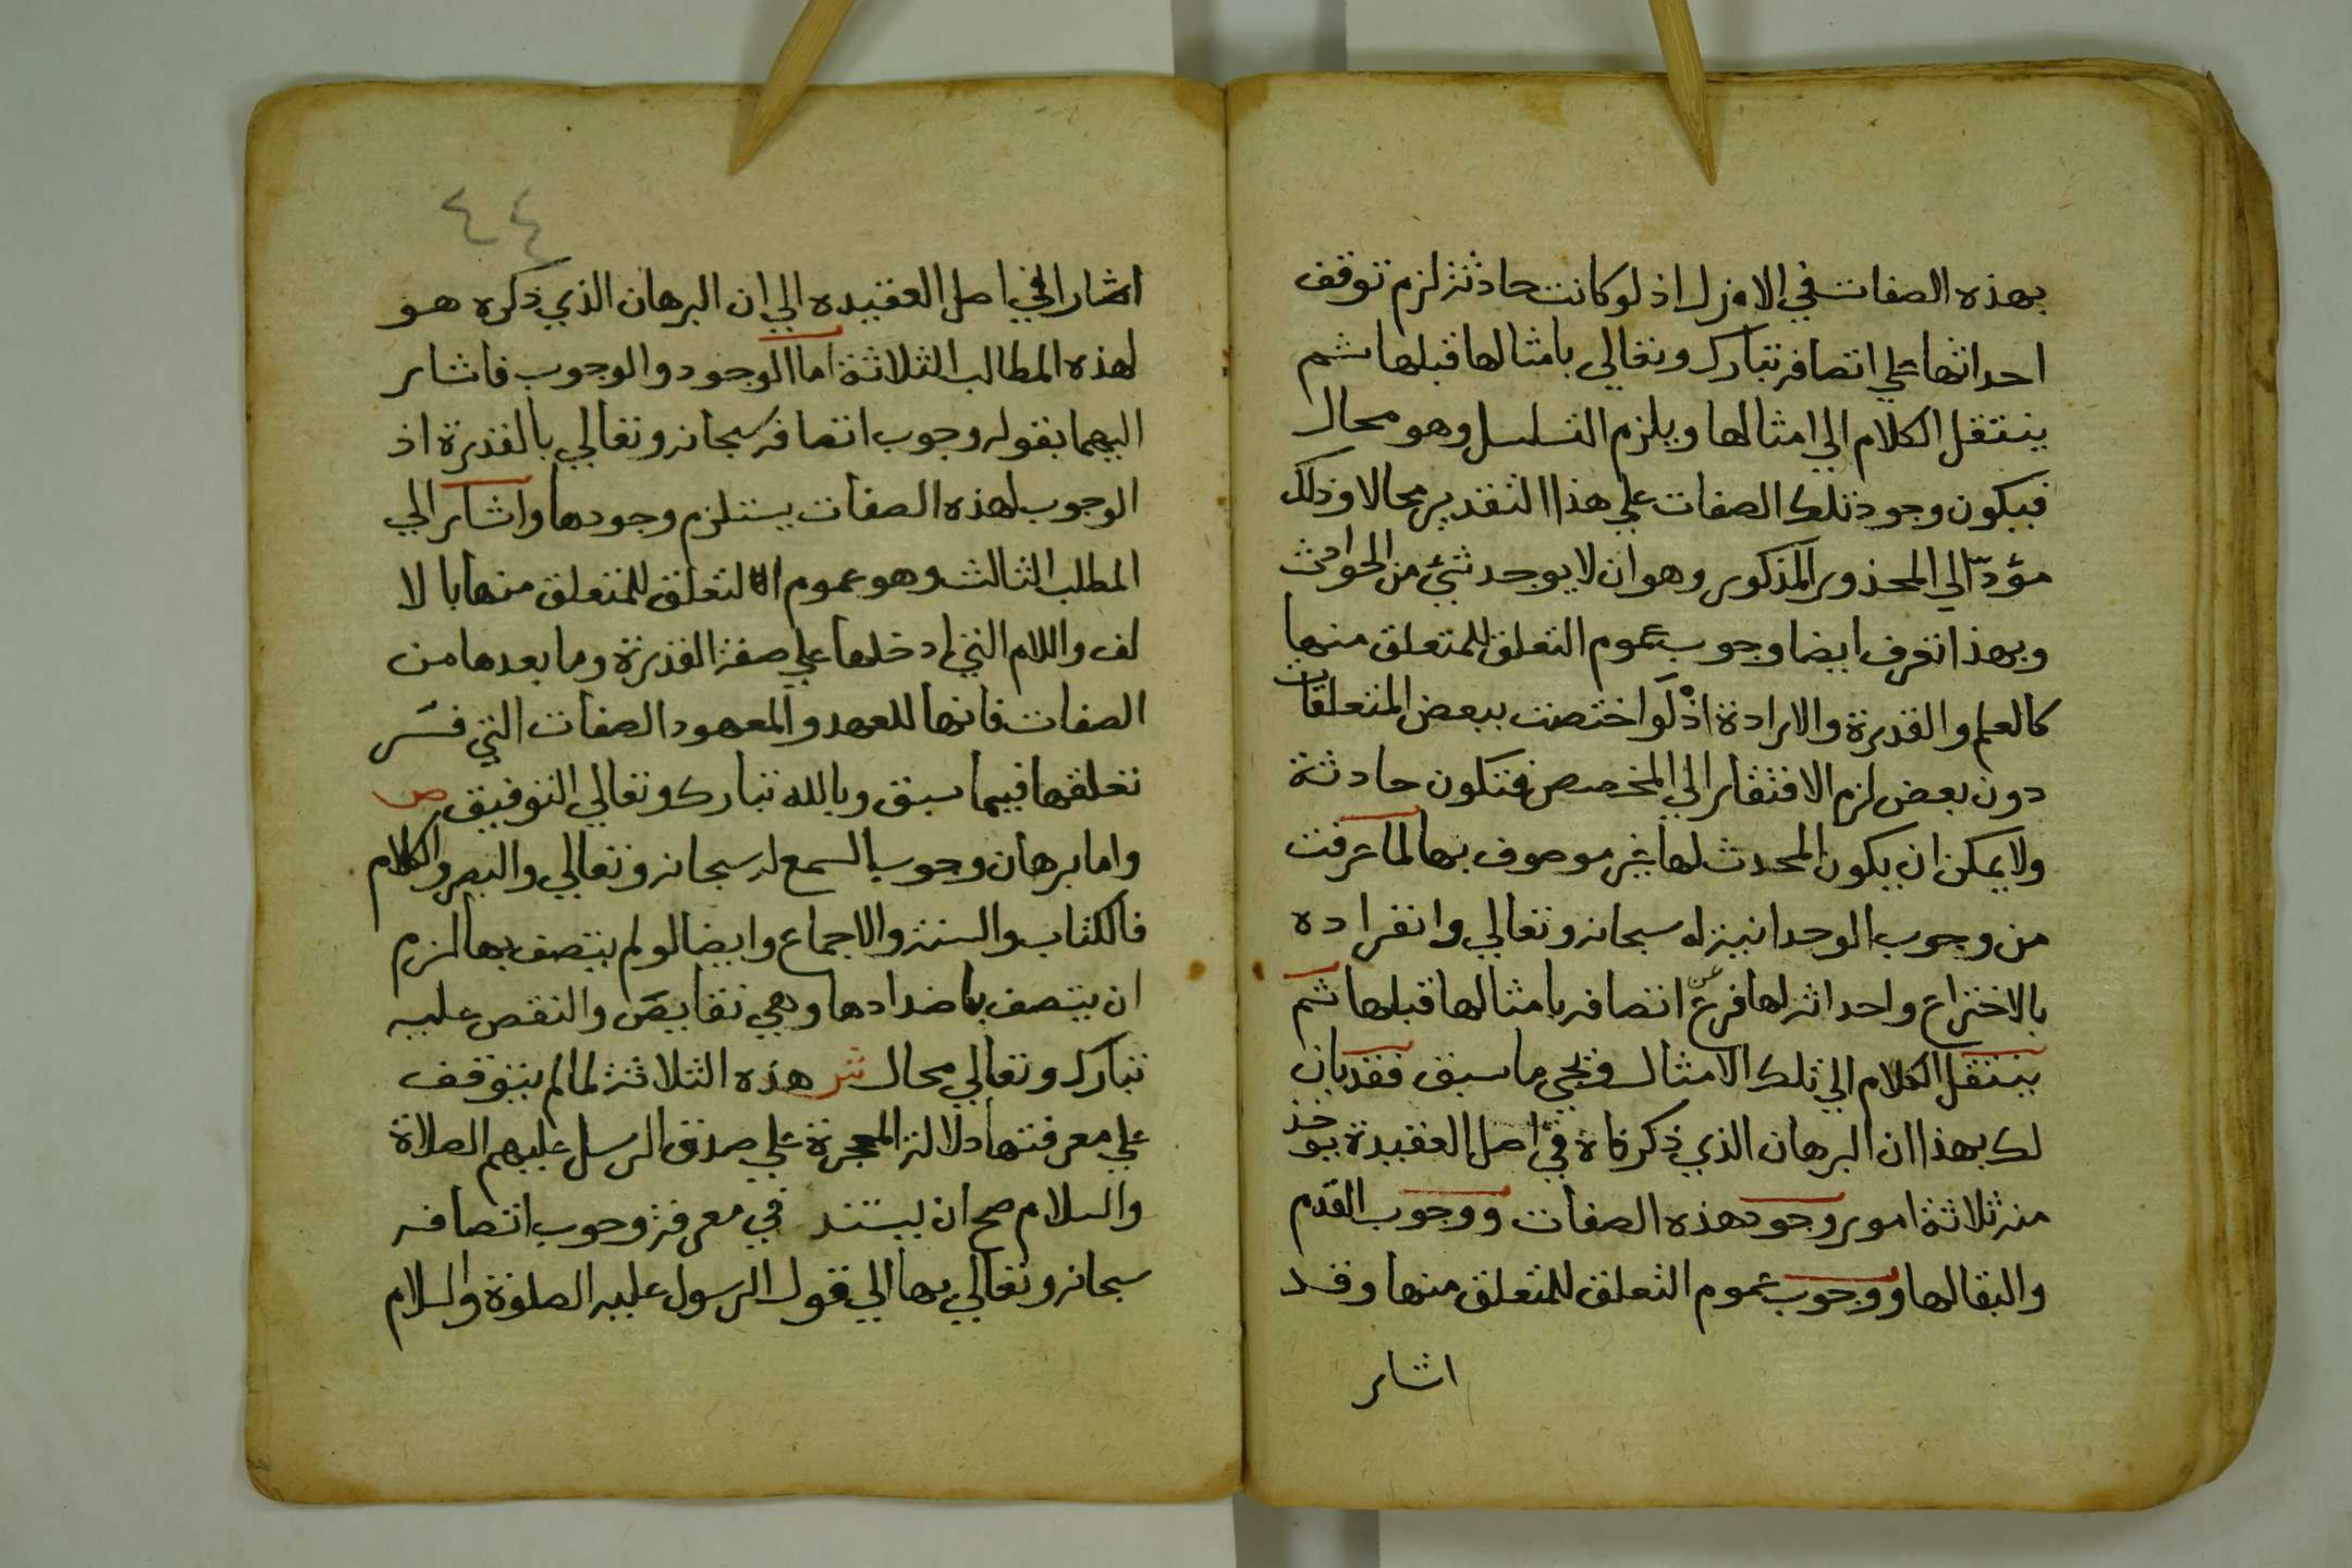 بهذه الصفات في الازل اذ لو كانت حادثة لزم توقف
احداثها علي اتصافه تبارك وتعالي بامثالها قبلها ثم
ينتقل الكلام الي امثالها ويلزم التسلسل وهو محال
فيكون وجود تلك الصفات علي هذا التقدير محالا وذلك
مؤدّ الي المحذور المذكور وهو ان لا يوجد شئ من الحوادث
وبهذا تعرف ايضا وجوب عموم التعلق للمتعلق منها
كالعلم والقدرة والارادة اذ لو اختصت ببعض المتعلقات
دون بعض لزم الافتقار الي المخصص فتكون حادثة
ولا يمكن ان يكون المحدث لها غير موصوف بها لما عرفت
من وجوب الوحدانية له سبحانه وتعالي وانفراده
بالاختراع واحداثه لها فرع عن اتصافه بامثالها قبلها ثم
ينتقل الكلام الي تلك الامثال ويجي ما سبق فقد بان
لك بهذا ان البرهان الذي ذكرناه في اصل العقيدة يوخذ
منه ثلاثة امور وجود هذه الصفات ووجوب القدم
والبقا لها ووجوب عموم التعلق للمتعلق منها وقد
اشار
٤٤
اشار في اصل العقيده الي ان البرهان الذي ذكره هو
لهذه المطالب الثلاثة اما الوجود والوجوب فاشار
اليهما بقوله وجوب اتصافه سبحانه وتعالي بالقدرة اذ
الوجوب لهذه الصفات يستلزم وجودها واشار الي
المطلب الثالث وهو عموم التعلق للمتعلق منها با لا
لف واللام التي ادخلها علي صفة القدرة وما بعدها من
الصفات فانها للعهد والمعهود الصفات التي فسّر
تعلقها فيما سبق وبالله تبارك وتعالي التوفيق ص
واما برهان وجوب السمع له سبحانه وتعالي والبصر والكلام
فالكتاب والسنة والاجماع وايضا لو لم يتصف بها لزم
ان يتصف باضدادها وهي نقايص والنقص عليه
تبارك وتعالي محال ش هذه الثلاثة لما لم يتوقف
علي معرفتها دلالة المعجزة علي صدق الرسل عليهم الصلاة
والسلام صح ان يستند في معرفة وجوب اتصافه
سبحانه وتعالي بها الي قول الرسول عليه الصلوة والسلام